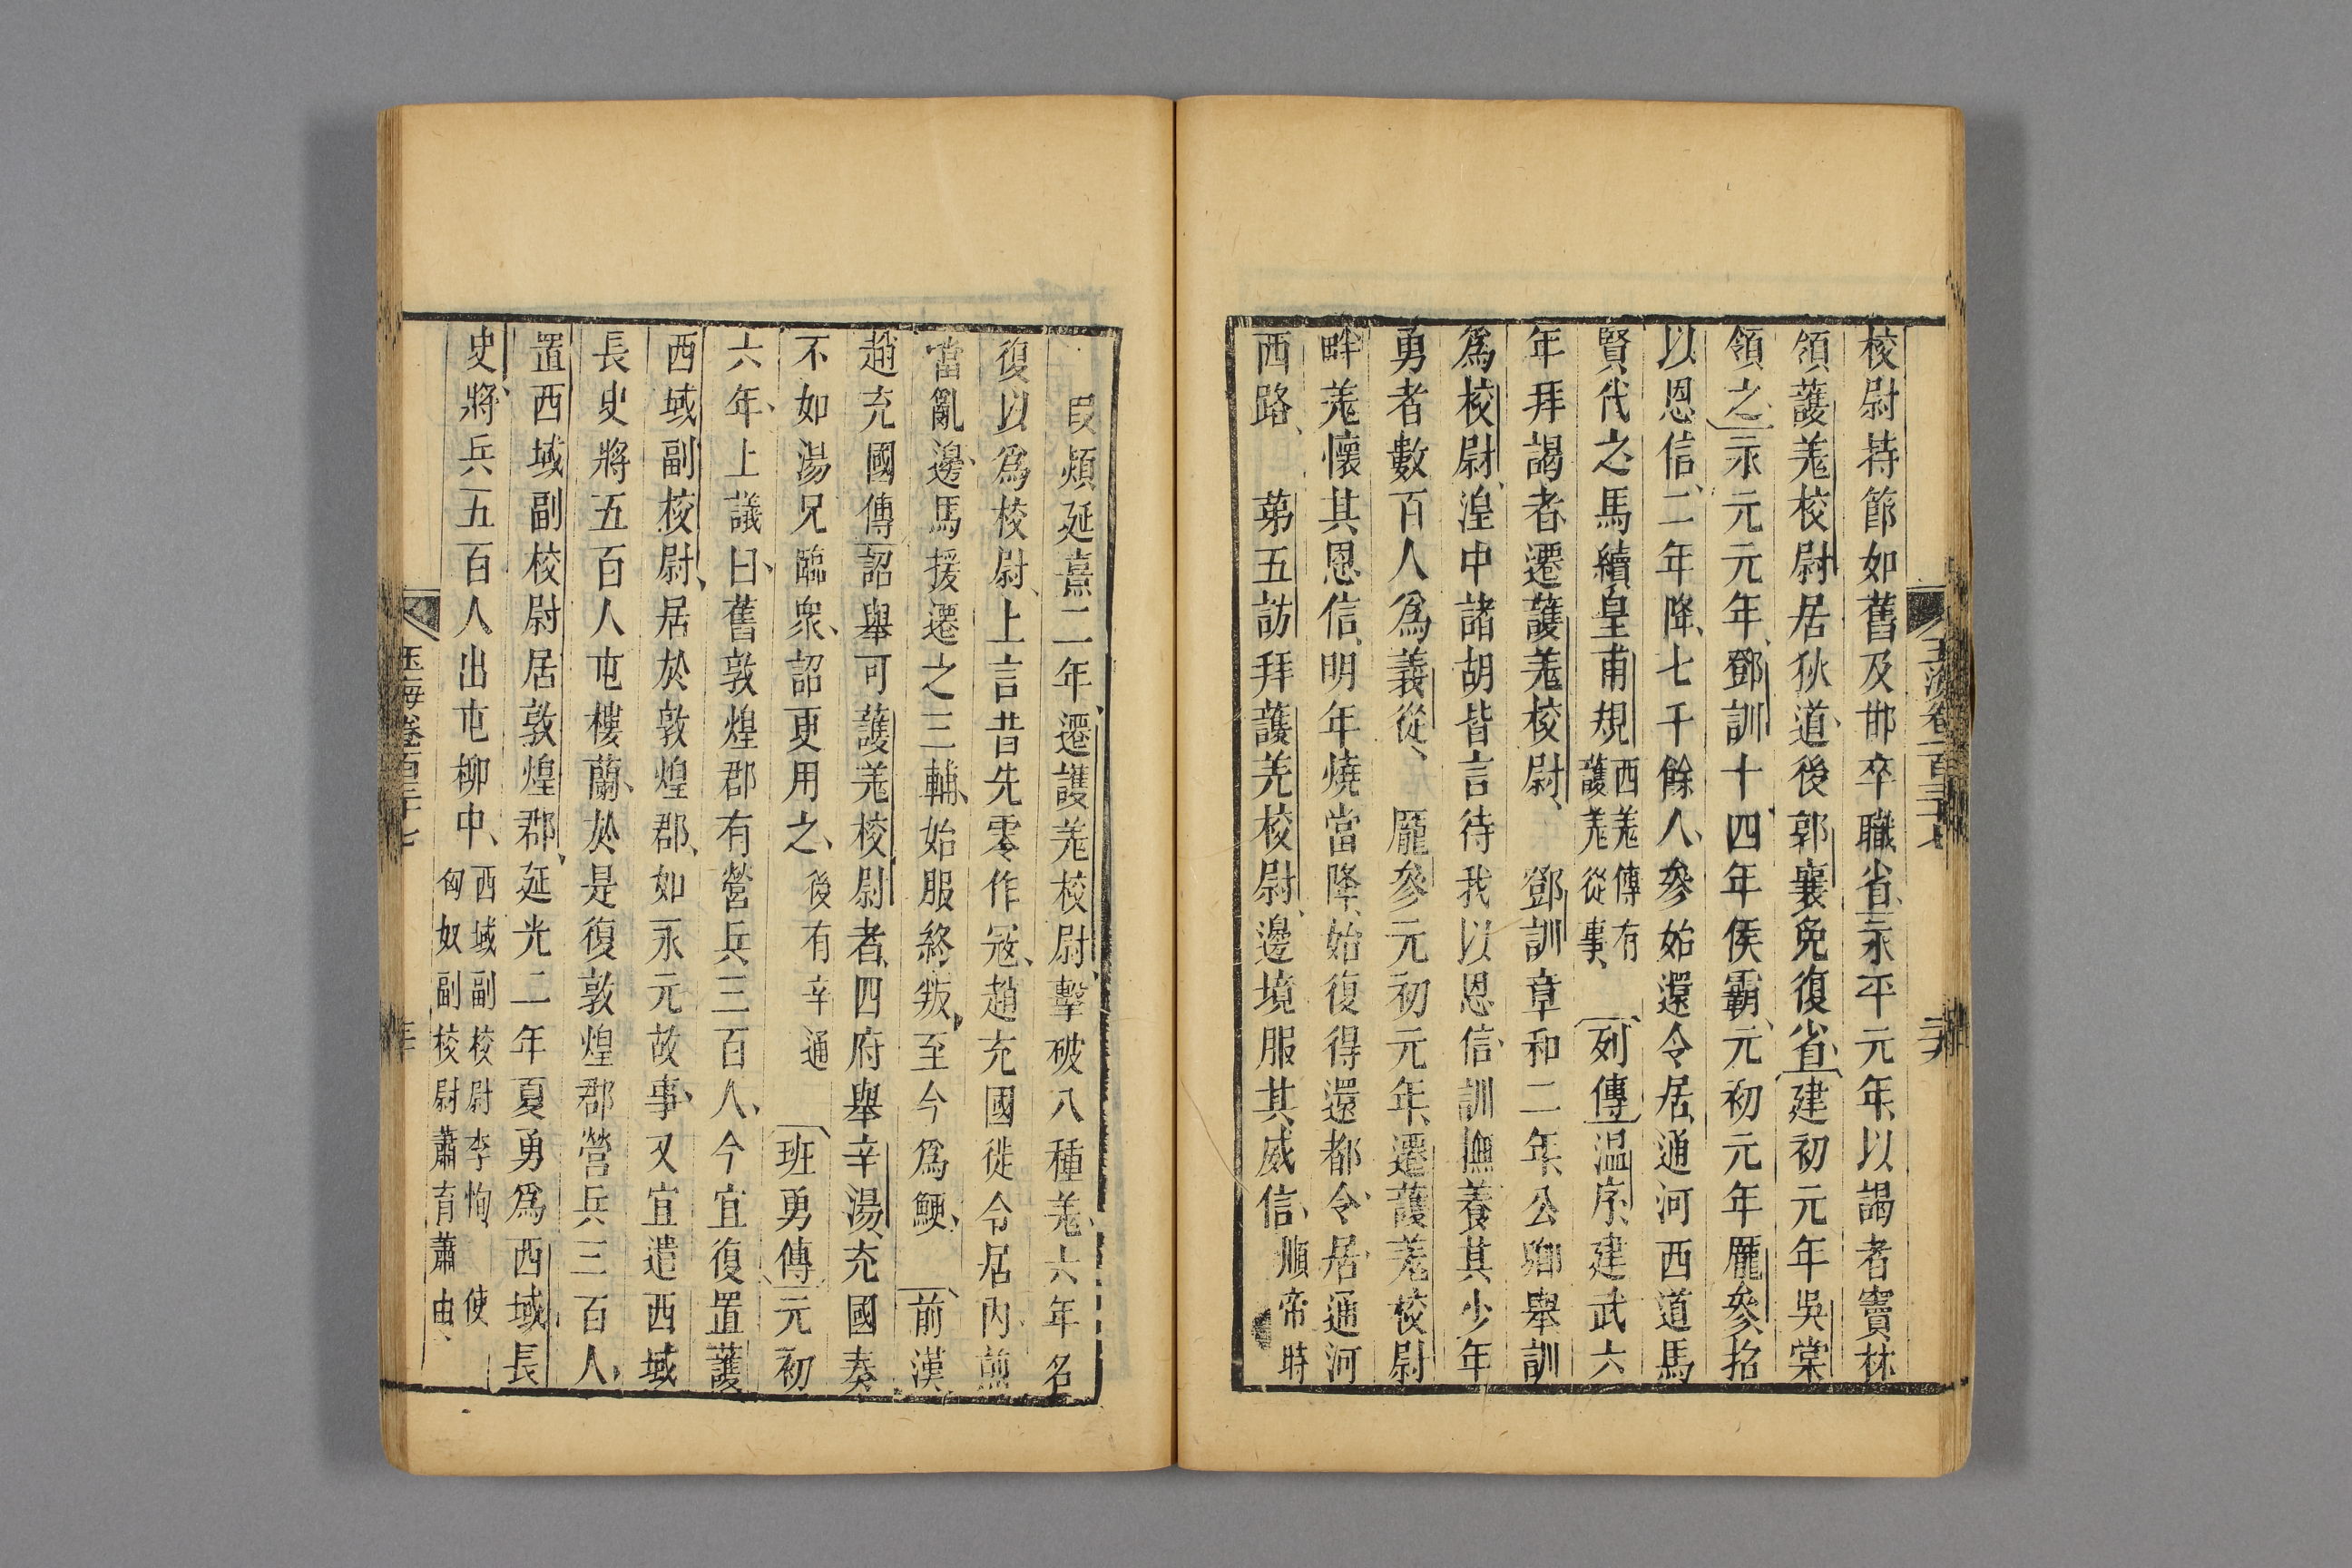 校尉持節如舊及邯卒職省永平元年以謁者竇林
領護羌校尉居狄道後郭襄免復省建初元年吳棠
領之永元元年鄧訓十四年侯霸元初元年龐參招
以恩信二年降七千餘人參始還令居通河西道馬
賢代之馬續皇甫規西羌傳有護羌從事列傳溫序建武六
年拜謁者遷護羌校尉鄧訓章和二年公卿舉訓
爲校尉湟中諸胡皆言待我以恩信訓撫養其少年
勇者數百人爲義從龐參元初元年遷護羌校尉
畔羌懷其恩信明年燒當降始復得還都令居通河
西路第五訪拜護羌校尉邊境服其威信順帝時
玉海卷一百三十七
段熲延熹二年遷護羌校尉擊破八種羌六年名
復以爲校尉上言昔先零作寇趙充國徙令居內煎
當亂邊馬援遷之三輔始服終叛至今爲鯁前漢
趙充國傳詔舉可護羌校尉者四府舉辛湯充國奏
不如湯兄臨衆詔更用之後有辛通班勇傳元初
六年上議曰舊敦煌郡有營兵三百人今宜復置護
西域副校尉居於敦煌郡如永元故事又宜遣西域
長史將五百人屯樓蘭於是復敦煌郡營兵三百人
置西域副校尉居敦煌郡延光二年夏勇爲西域長
史將兵五百人出屯柳中西域副校尉李恂使匈奴副校尉蕭育蕭由
玉海卷百三十七